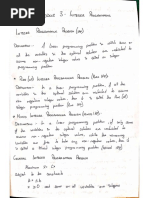 MODULE 3 - INTEGER PROGRAMMING
INTEGER PROGRAMMING PROBLEM (IPP)
DEFINITION - A linear programming problem in which some or
all the variables in the optimal solution are restricted to
assume non-negative integer values is called an integer
programming problem
PURE (All) INTEGER PROGRAMMING PROBLEM (Pure IPP)
DEFINITION - In a linear programming problem if all the
variables in the optimal solution are restricted to assume
non-negative integer values then it is called pure integer
programming problem
MIXED INTEGER PROGRAMMING PROBLEM (Mixed IPP)
DEFINITION - In a linear programming problem if only some of
the variables in the optimal solution are restricted to assume
non-negative integer values while the remaining variables are free to take
any non-negative values, then it is called a mixed
integer programming problem
GENERAL INTEGER PROGRAMMING PROBLEM
Maximize Z = CX
subject to the constraints
AX ≤ b
X ≥ 0 and some or all variables are integers